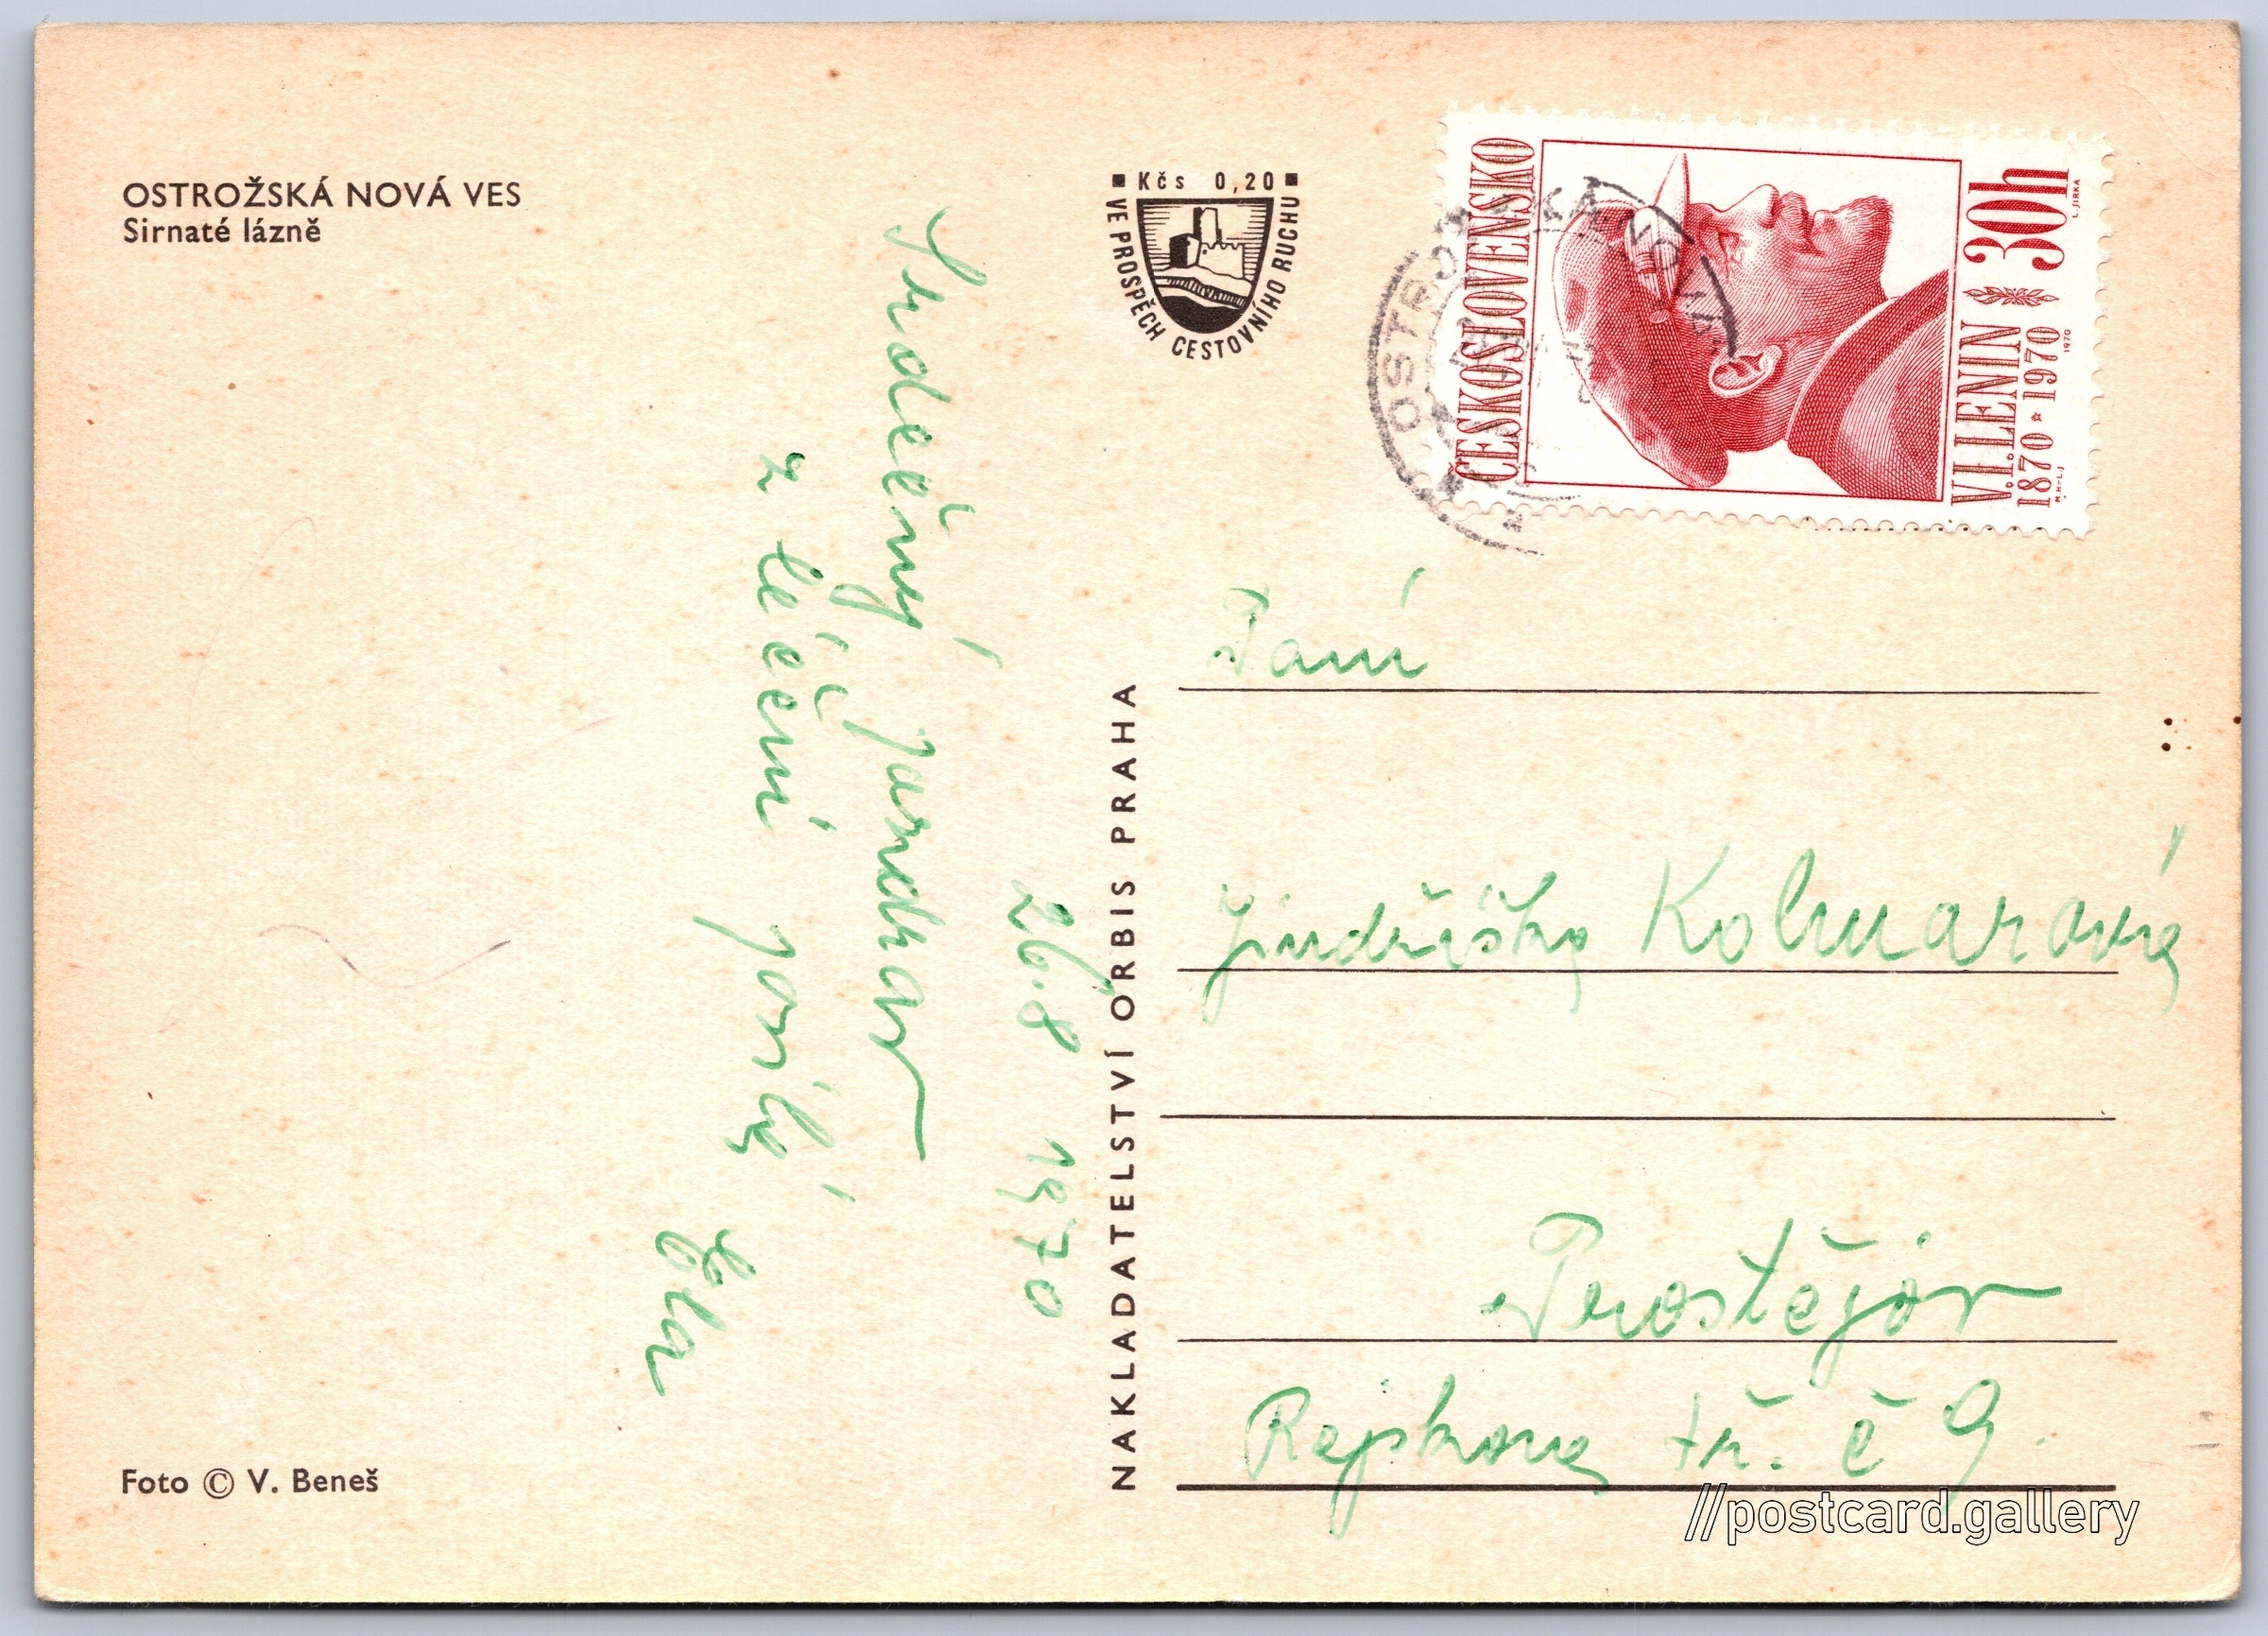 OSTROŽSKÁ NOVÁ VES
Sirnaté lázně
26.8 1970
Srdečný pozdrav
z léčení posílá
Ela
Foto © V. Beneš
Kčs 0,20
VE PROSPĚCH CESTOVNÍHO RUCHU
NAKLADATELSTVÍ ORBIS PRAHA
ČESKOSLOVENSKO
V.I. LENIN 30h
1870 * 1970
M.H-L.J
1970
L. JIRKA
OSTROŽSKÁ NOVÁ
Paní
Jindřiška Kolmarová
Prostějov
Rejskova tř. č 9.
//postcard.gallery